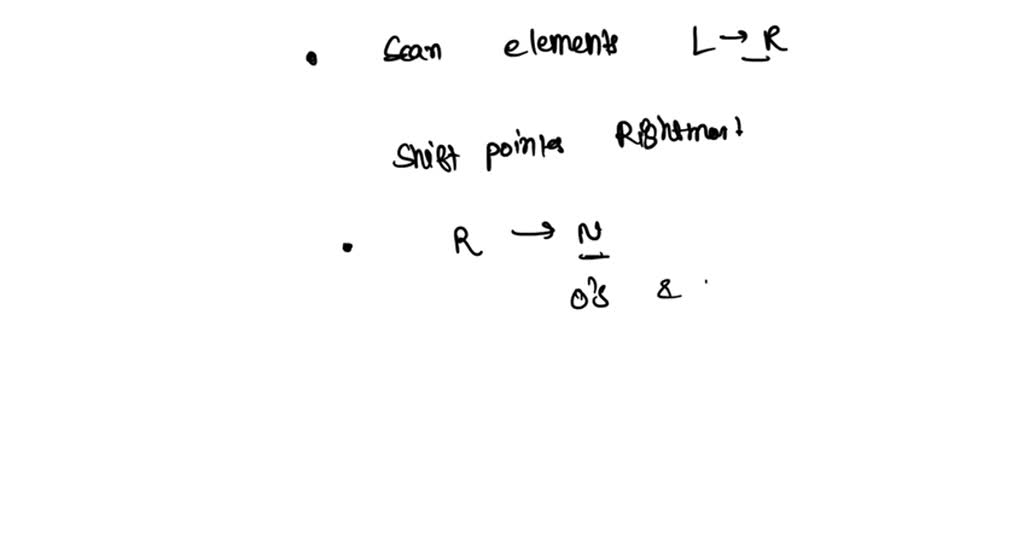 • Scan elements L → R
Shift pointer Rightmost
• R → N
0's &